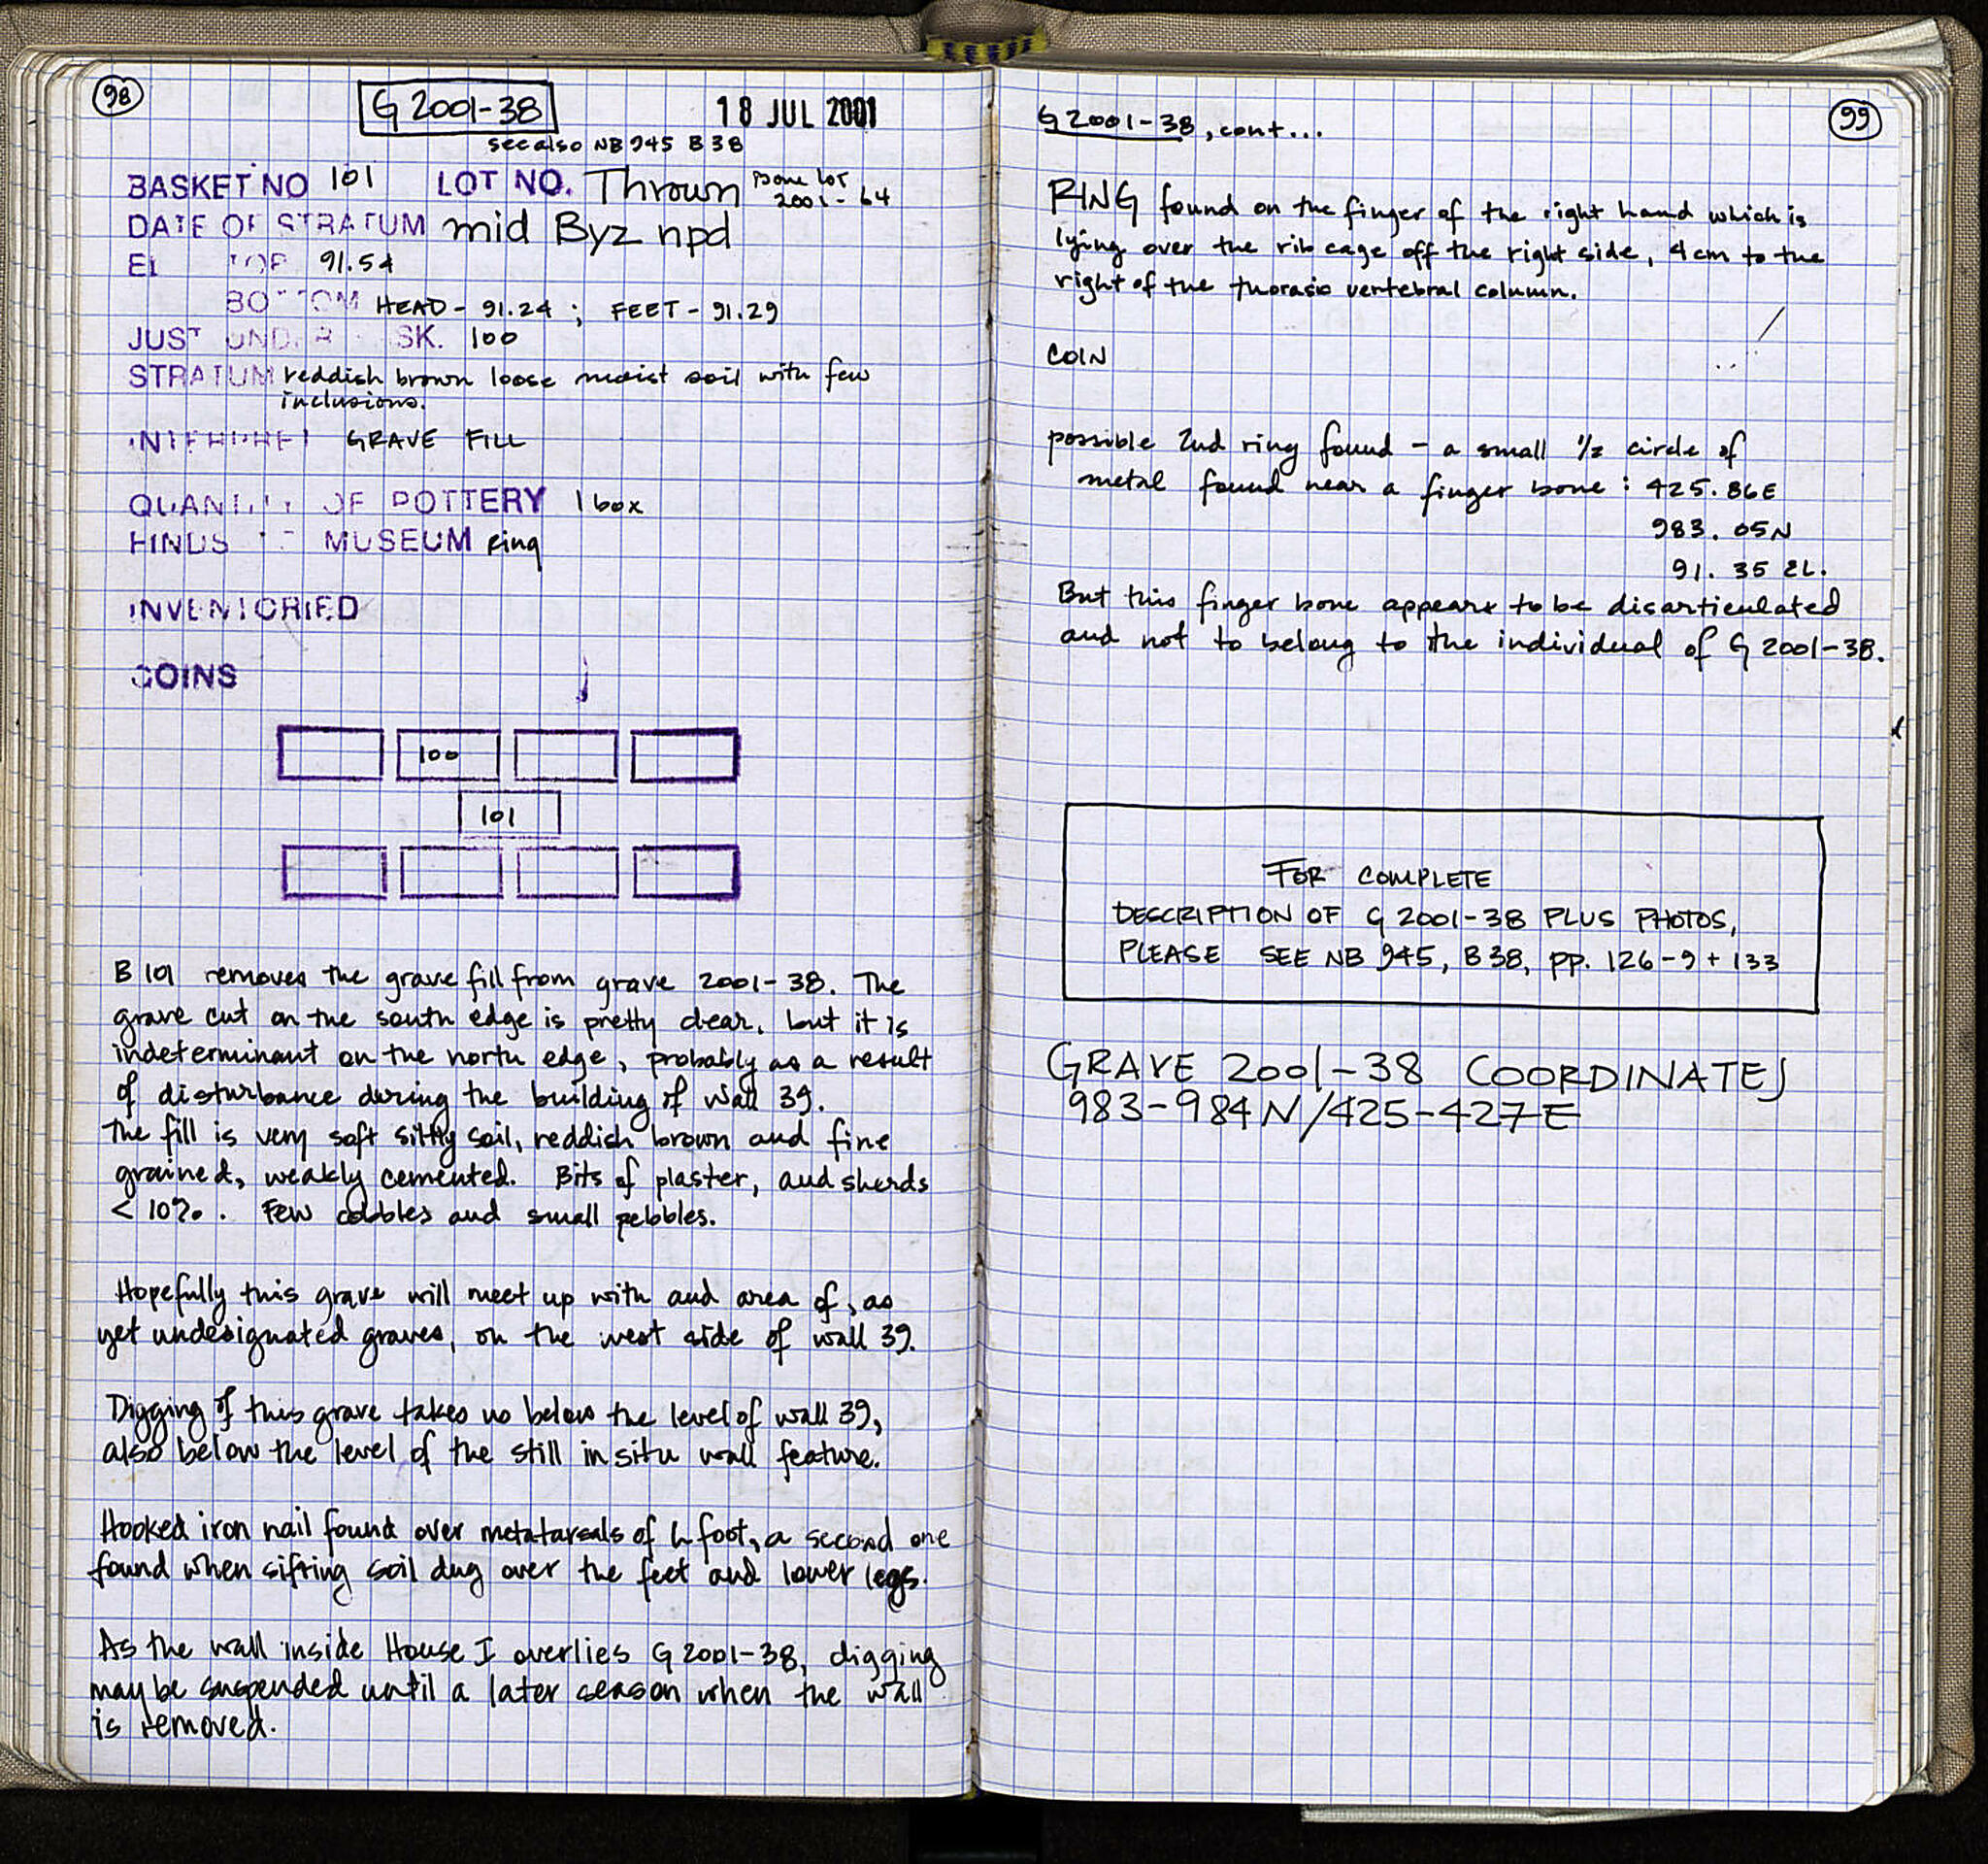 98
G 2001-38
18 JUL 2001
see also NB 945 B 38
BASKET NO 101 LOT NO. Thrown Bone lot
2001-64
DATE OF STRATUM mid Byz npd
EL TOP 91.54
BOTTOM HEAD - 91.24 ; FEET - 91.29
JUST UNDER BSK. 100
STRATUM reddish brown loose moist soil with few
inclusions.
INTERPRET GRAVE FILL
QUANTITY OF POTTERY 1 box
FINDS TO MUSEUM ring
INVENTORIED
COINS
100
101
B 101 removes the grave fill from grave 2001-38. The
grave cut on the south edge is pretty clear, but it is
indeterminant on the north edge, probably as a result
of disturbance during the building of wall 39.
The fill is very soft siltty soil, reddish brown and fine
grained, weakly cemented. Bits of plaster, and sherds
< 10%. Few cobbles and small pebbles.
Hopefully this grave will meet up with and area of, as
yet undesignated graves, on the west side of wall 39.
Digging of this grave takes us below the level of wall 39,
also below the level of the still in situ wall feature.
Hooked iron nail found over metatarsals of L foot, a second one
found when sifting soil dug over the feet and lower legs.
As the wall inside House I overlies G 2001-38, digging
may be suspended until a later season when the wall
is removed.
G 2001-38, cont...
99
RING found on the finger of the right hand which is
lying over the rib cage off the right side, 4 cm to the
right of the thorasic vertebral column.
COIN
possible 2nd ring found - a small 1/2 circle of
metal found near a finger bone : 425.86E
983.05N
91.35 EL.
But this finger bone appears to be disarticulated
and not to belong to the individual of G 2001-38.
FOR COMPLETE
DESCRIPTION OF G 2001-38 PLUS PHOTOS,
PLEASE SEE NB 945, B 38, pp. 126-9 + 133
GRAVE 2001-38 COORDINATES
983-984N/425-427E